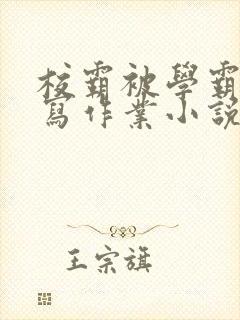 校霸被學霸
寫作業小說
王宗旗